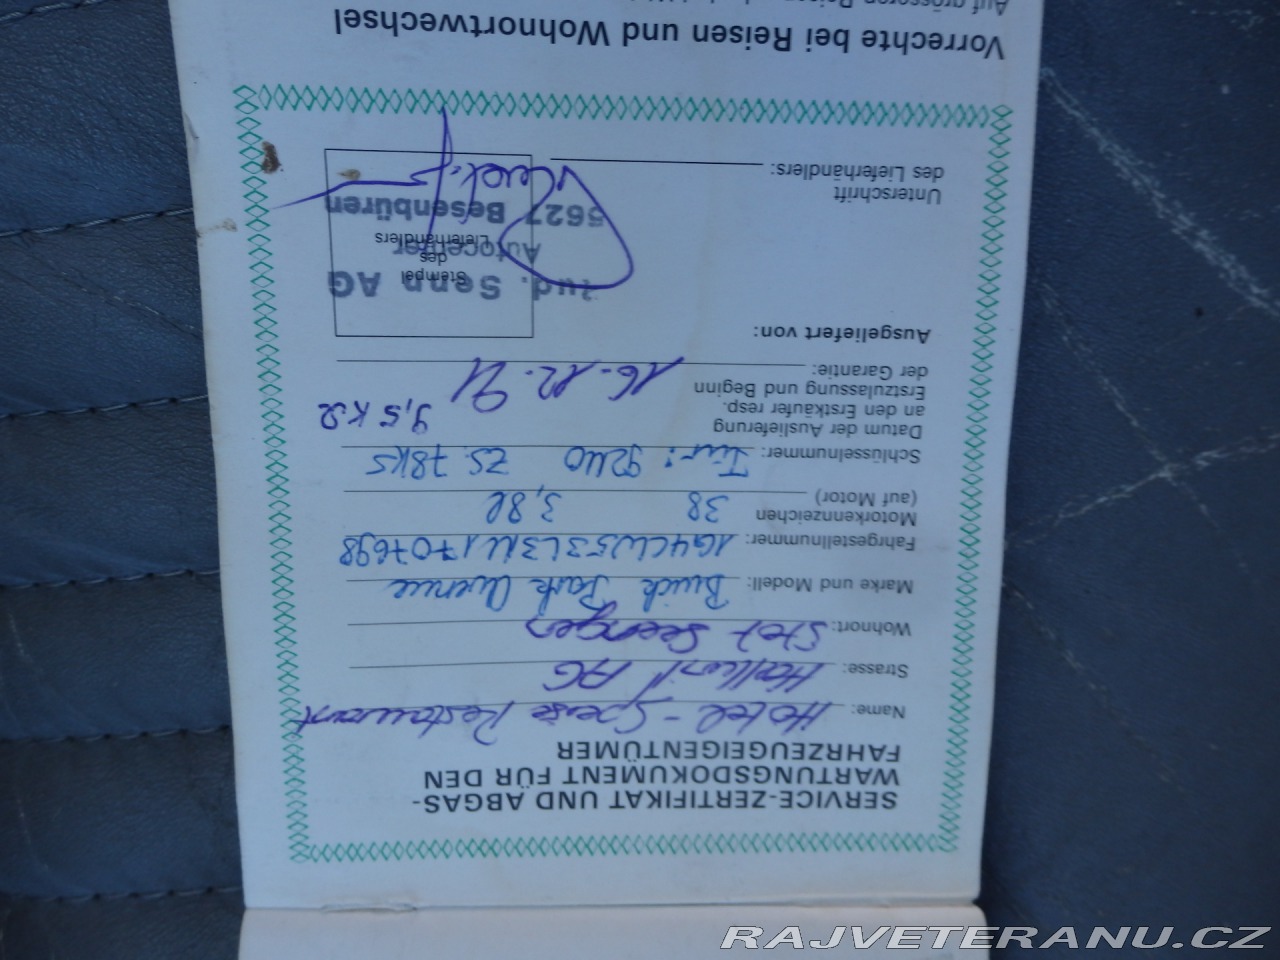 SERVICE-ZERTIFIKAT UND ABGAS-
WARTUNGSDOKUMENT FÜR DEN
FAHRZEUGEIGENTÜMER
Name: Hotel - Speise Restaurant
Strasse: Hallwil AG
Wohnort: Seengen
Marke und Modell: Buick Park Avenue
Fahrgestellnummer: 1G4CW53L3M1707698
Motorkennzeichen
(auf Motor) 38 3,8l
Schlüsselnummer: 9240 ZS. 78K5
Datum der Auslieferung
an den Erstkäufer resp. 9,5 KΩ
Erstzulassung und Beginn
der Garantie: 16.12.91
Ausgeliefert von:
Stempel
des
Lieferhändlers
Rud. Senn AG
Autocenter
5627 Besenbüren
Unterschrift
des Lieferhändlers:
Vorrechte bei Reisen und Wohnortwechsel
RAJVETERANU.CZ